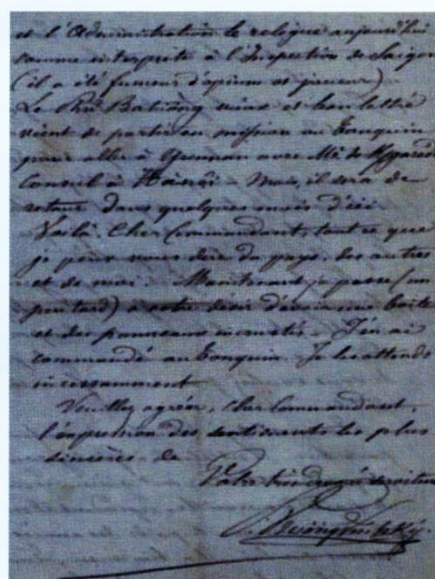 et l'Administration le relègue aujourd'hui
comme interprète à l'Inspection de Saigon
(il a été fumeur d'opium et joueur)
Le Phu Ba Tường vieux et bon lettré
vient de partir en mission au Tonquin
pour aller à Yunnan avec Mr de Kergaradec
Consul à Hànội. Mais, il sera de
retour dans quelques mois d'ici.
Voilà Cher Commandant, tout ce que
je peux vous dire du pays, des autres
et de moi. Maintenant je passe (un
peu tard) à votre désir d'avoir une boîte
et des panneaux incrustés. J'en ai
commandé au Tonquin. Je les attends
incessamment
Veuillez agréer, Cher Commandant,
l'expression des sentiments les plus
sincères de
Votre très dévoué serviteur
P. Trương Vĩnh Ký